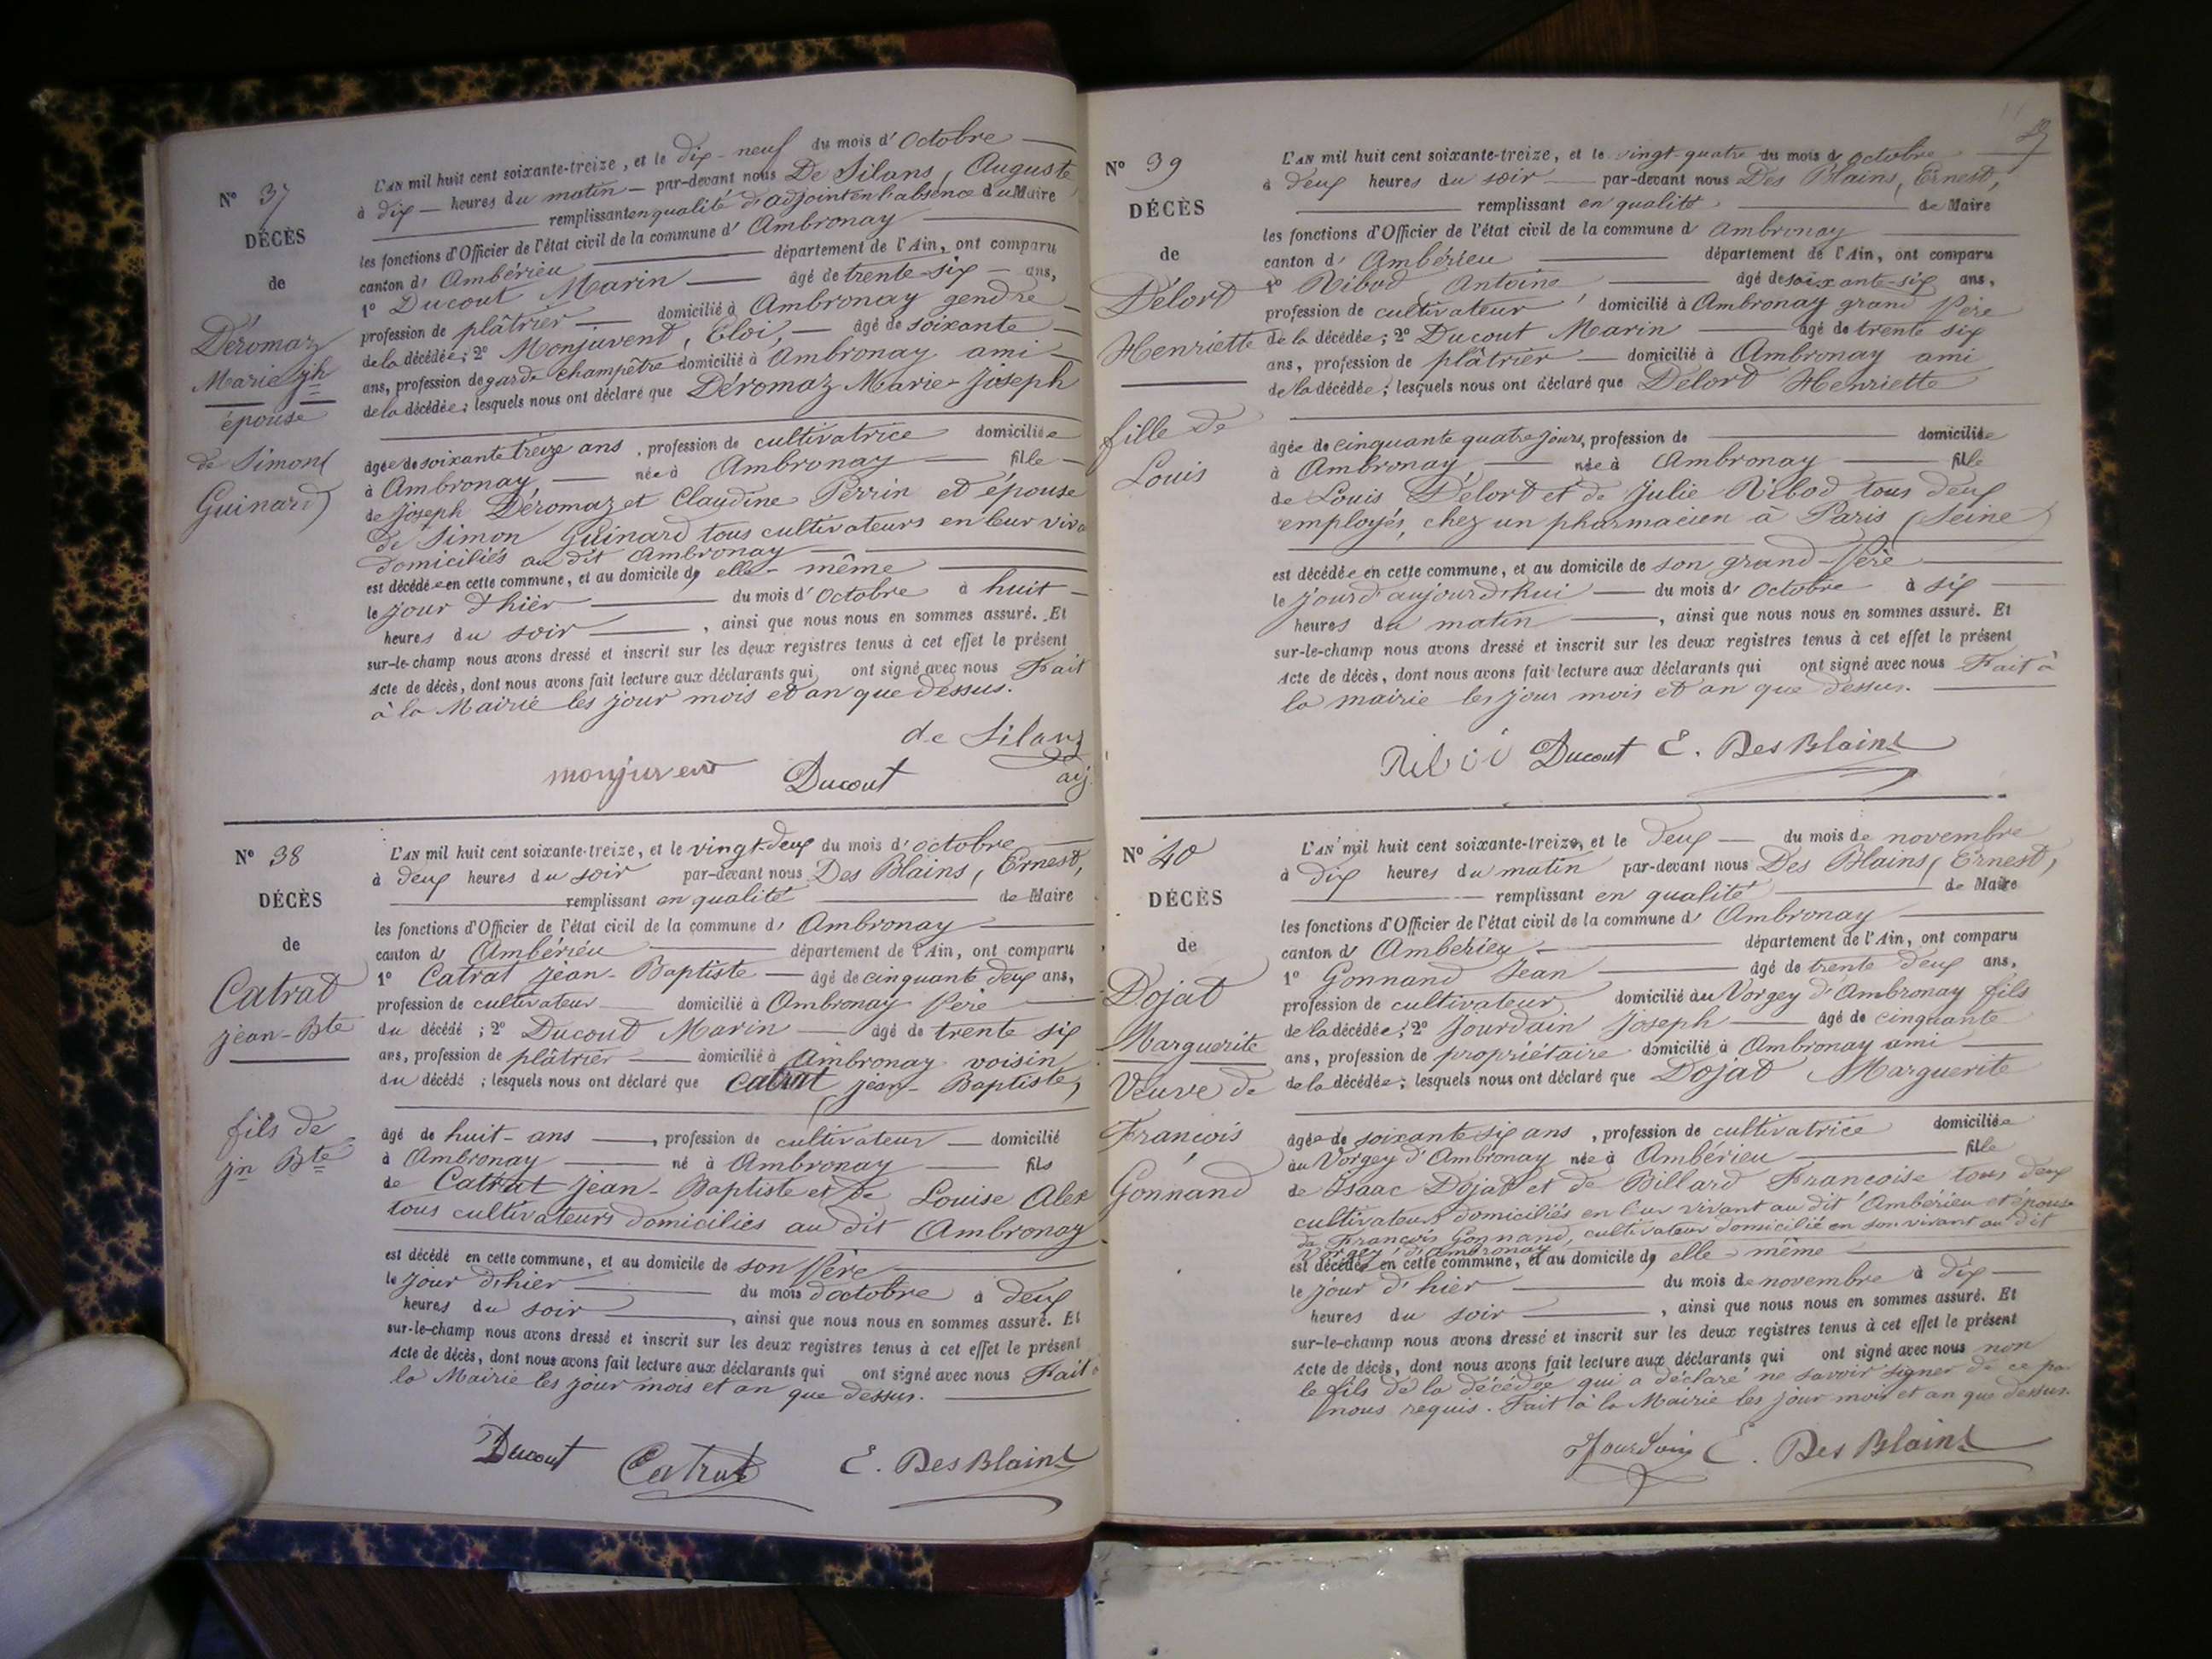 N° 37
DÉCÈS
de
Déromaz
Marie jph
épouse
de Simond
Guinard
L'AN mil huit cent soixante-treize, et le dix-neuf du mois d'Octobre
à dix heures du matin par-devant nous De Silans, Auguste
remplissant en qualité d'adjoint en l'absence du Maire
les fonctions d'Officier de l'état civil de la commune d'Ambronay
canton d'Ambérieu département de l'Ain, ont comparu
1° Ducout Marin âgé de trente-six ans,
profession de plâtrier domicilié à Ambronay gendre
de la décédée; 2° Monjuvent, Eloi, âgé de soixante
ans, profession de garde champêtre domicilié à Ambronay ami
de la décédée; lesquels nous ont déclaré que Déromaz Marie-Joseph
âgée de soixante treize ans, profession de cultivatrice domiciliée
à Ambronay, née à Ambronay fille
de Joseph Déromaz et Claudine Perrin et épouse
de Simon Guinard tous cultivateurs en leur viva
domiciliés au dit Ambronay
est décédée en cette commune, et au domicile d'elle-même
le jour d'hier du mois d'Octobre à huit
heures du soir, ainsi que nous nous en sommes assuré. Et
sur-le-champ nous avons dressé et inscrit sur les deux registres tenus à cet effet le présent
Acte de décès, dont nous avons fait lecture aux déclarants qui ont signé avec nous Fait
à la Mairie les jour mois et an que dessus.
de Silans
adj
monjuvent Ducout
N° 38
DÉCÈS
de
Catrat
jean-Bte
fils de
jn Bte
L'AN mil huit cent soixante-treize, et le vingt-deux du mois d'octobre
à deux heures du soir par-devant nous Des Blains, Ernest,
remplissant en qualité de Maire
les fonctions d'Officier de l'état civil de la commune d'Ambronay
canton d'Ambérieu département de l'Ain, ont comparu
1° Catrat jean-Baptiste âgé de cinquante deux ans,
profession de cultivateur domicilié à Ambronay Père
du décédé; 2° Ducout Marin âgé de trente six
ans, profession de plâtrier domicilié à Ambronay voisin
du décédé; lesquels nous ont déclaré que Catrat jean-Baptiste,
âgé de huit-ans, profession de cultivateur domicilié
à Ambronay né à Ambronay fils
de Catrat jean-Baptiste et de Louise Alex
tous cultivateurs domiciliés au dit Ambronay
est décédé en cette commune, et au domicile de son Père
le jour d'hier du mois d'octobre à deux
heures du soir, ainsi que nous nous en sommes assuré. Et
sur-le-champ nous avons dressé et inscrit sur les deux registres tenus à cet effet le présent
Acte de décès, dont nous avons fait lecture aux déclarants qui ont signé avec nous Fait à
la Mairie les jour mois et an que dessus.
Ducout Catrat E. Des Blains
N° 39
DÉCÈS
de
Délord
Henriette
fille de
Louis
L'AN mil huit cent soixante-treize, et le vingt-quatre du mois d'octobre
à deux heures du soir par-devant nous Des Blains, Ernest,
remplissant en qualité de Maire
les fonctions d'Officier de l'état civil de la commune d'Ambronay
canton d'Ambérieu département de l'Ain, ont comparu
1° Ribod Antoine âgé de soixante-six ans,
profession de cultivateur domicilié à Ambronay grand Père
de la décédée; 2° Ducout Marin âgé de trente six
ans, profession de plâtrier domicilié à Ambronay ami
de la décédée; lesquels nous ont déclaré que Délord Henriette
âgée de cinquante quatre jours, profession de domiciliée
à Ambronay, née à Ambronay fille
de Louis Délord et de Julie Ribod tous deux
employés, chez un pharmacien à Paris (Seine)
est décédée en cette commune, et au domicile de son grand-Père
le jour d'aujourd'hui du mois d'Octobre à six
heures du matin, ainsi que nous nous en sommes assuré. Et
sur-le-champ nous avons dressé et inscrit sur les deux registres tenus à cet effet le présent
Acte de décès, dont nous avons fait lecture aux déclarants qui ont signé avec nous Fait à
la mairie les jour mois et an que dessus.
Ribod Ducout E. Des Blains
N° 40
DÉCÈS
de
Dojat
Marguerite
Veuve de
François
Gonnand
L'AN mil huit cent soixante-treize, et le deux du mois de novembre
à dix heures du matin par-devant nous Des Blains, Ernest,
remplissant en qualité de Maire
les fonctions d'Officier de l'état civil de la commune d'Ambronay
canton d'Ambérieu département de l'Ain, ont comparu
1° Gonnand Jean âgé de trente deux ans,
profession de cultivateur domicilié au Vorgey d'Ambronay fils
de la décédée; 2° Jourdain Joseph âgé de cinquante
ans, profession de propriétaire domicilié à Ambronay ami
de la décédée; lesquels nous ont déclaré que Dojat Marguerite
âgée de soixante six ans, profession de cultivatrice domiciliée
au Vorgey d'Ambronay née à Ambérieu fille
de Isaac Dojat et de Billard Françoise tous deux
cultivateurs domiciliés en leur vivant au dit Ambérieu et épouse
de François Gonnand, cultivateur domicilié en son vivant au dit
Vorgey d'Ambronay
est décédée en cette commune, et au domicile d'elle-même
le jour d'hier du mois de novembre à dix
heures du soir, ainsi que nous nous en sommes assuré. Et
sur-le-champ nous avons dressé et inscrit sur les deux registres tenus à cet effet le présent
Acte de décès, dont nous avons fait lecture aux déclarants qui ont signé avec nous non
le fils de la décédée qui a déclaré ne savoir signer de ce par
nous requis. Fait à la Mairie les jour mois et an que dessus.
Jourdain E. Des Blains